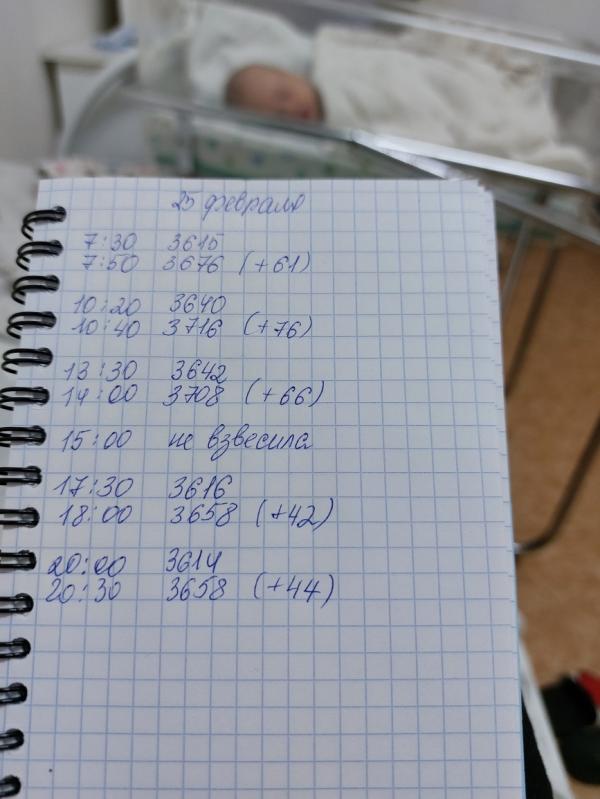 25 февраля
7:30 3615
7:50 3676 (+61)
10:20 3640
10:40 3716 (+76)
13:30 3642
14:00 3708 (+66)
15:00 не взвесила
17:30 3616
18:00 3658 (+42)
20:00 3614
20:30 3658 (+44)